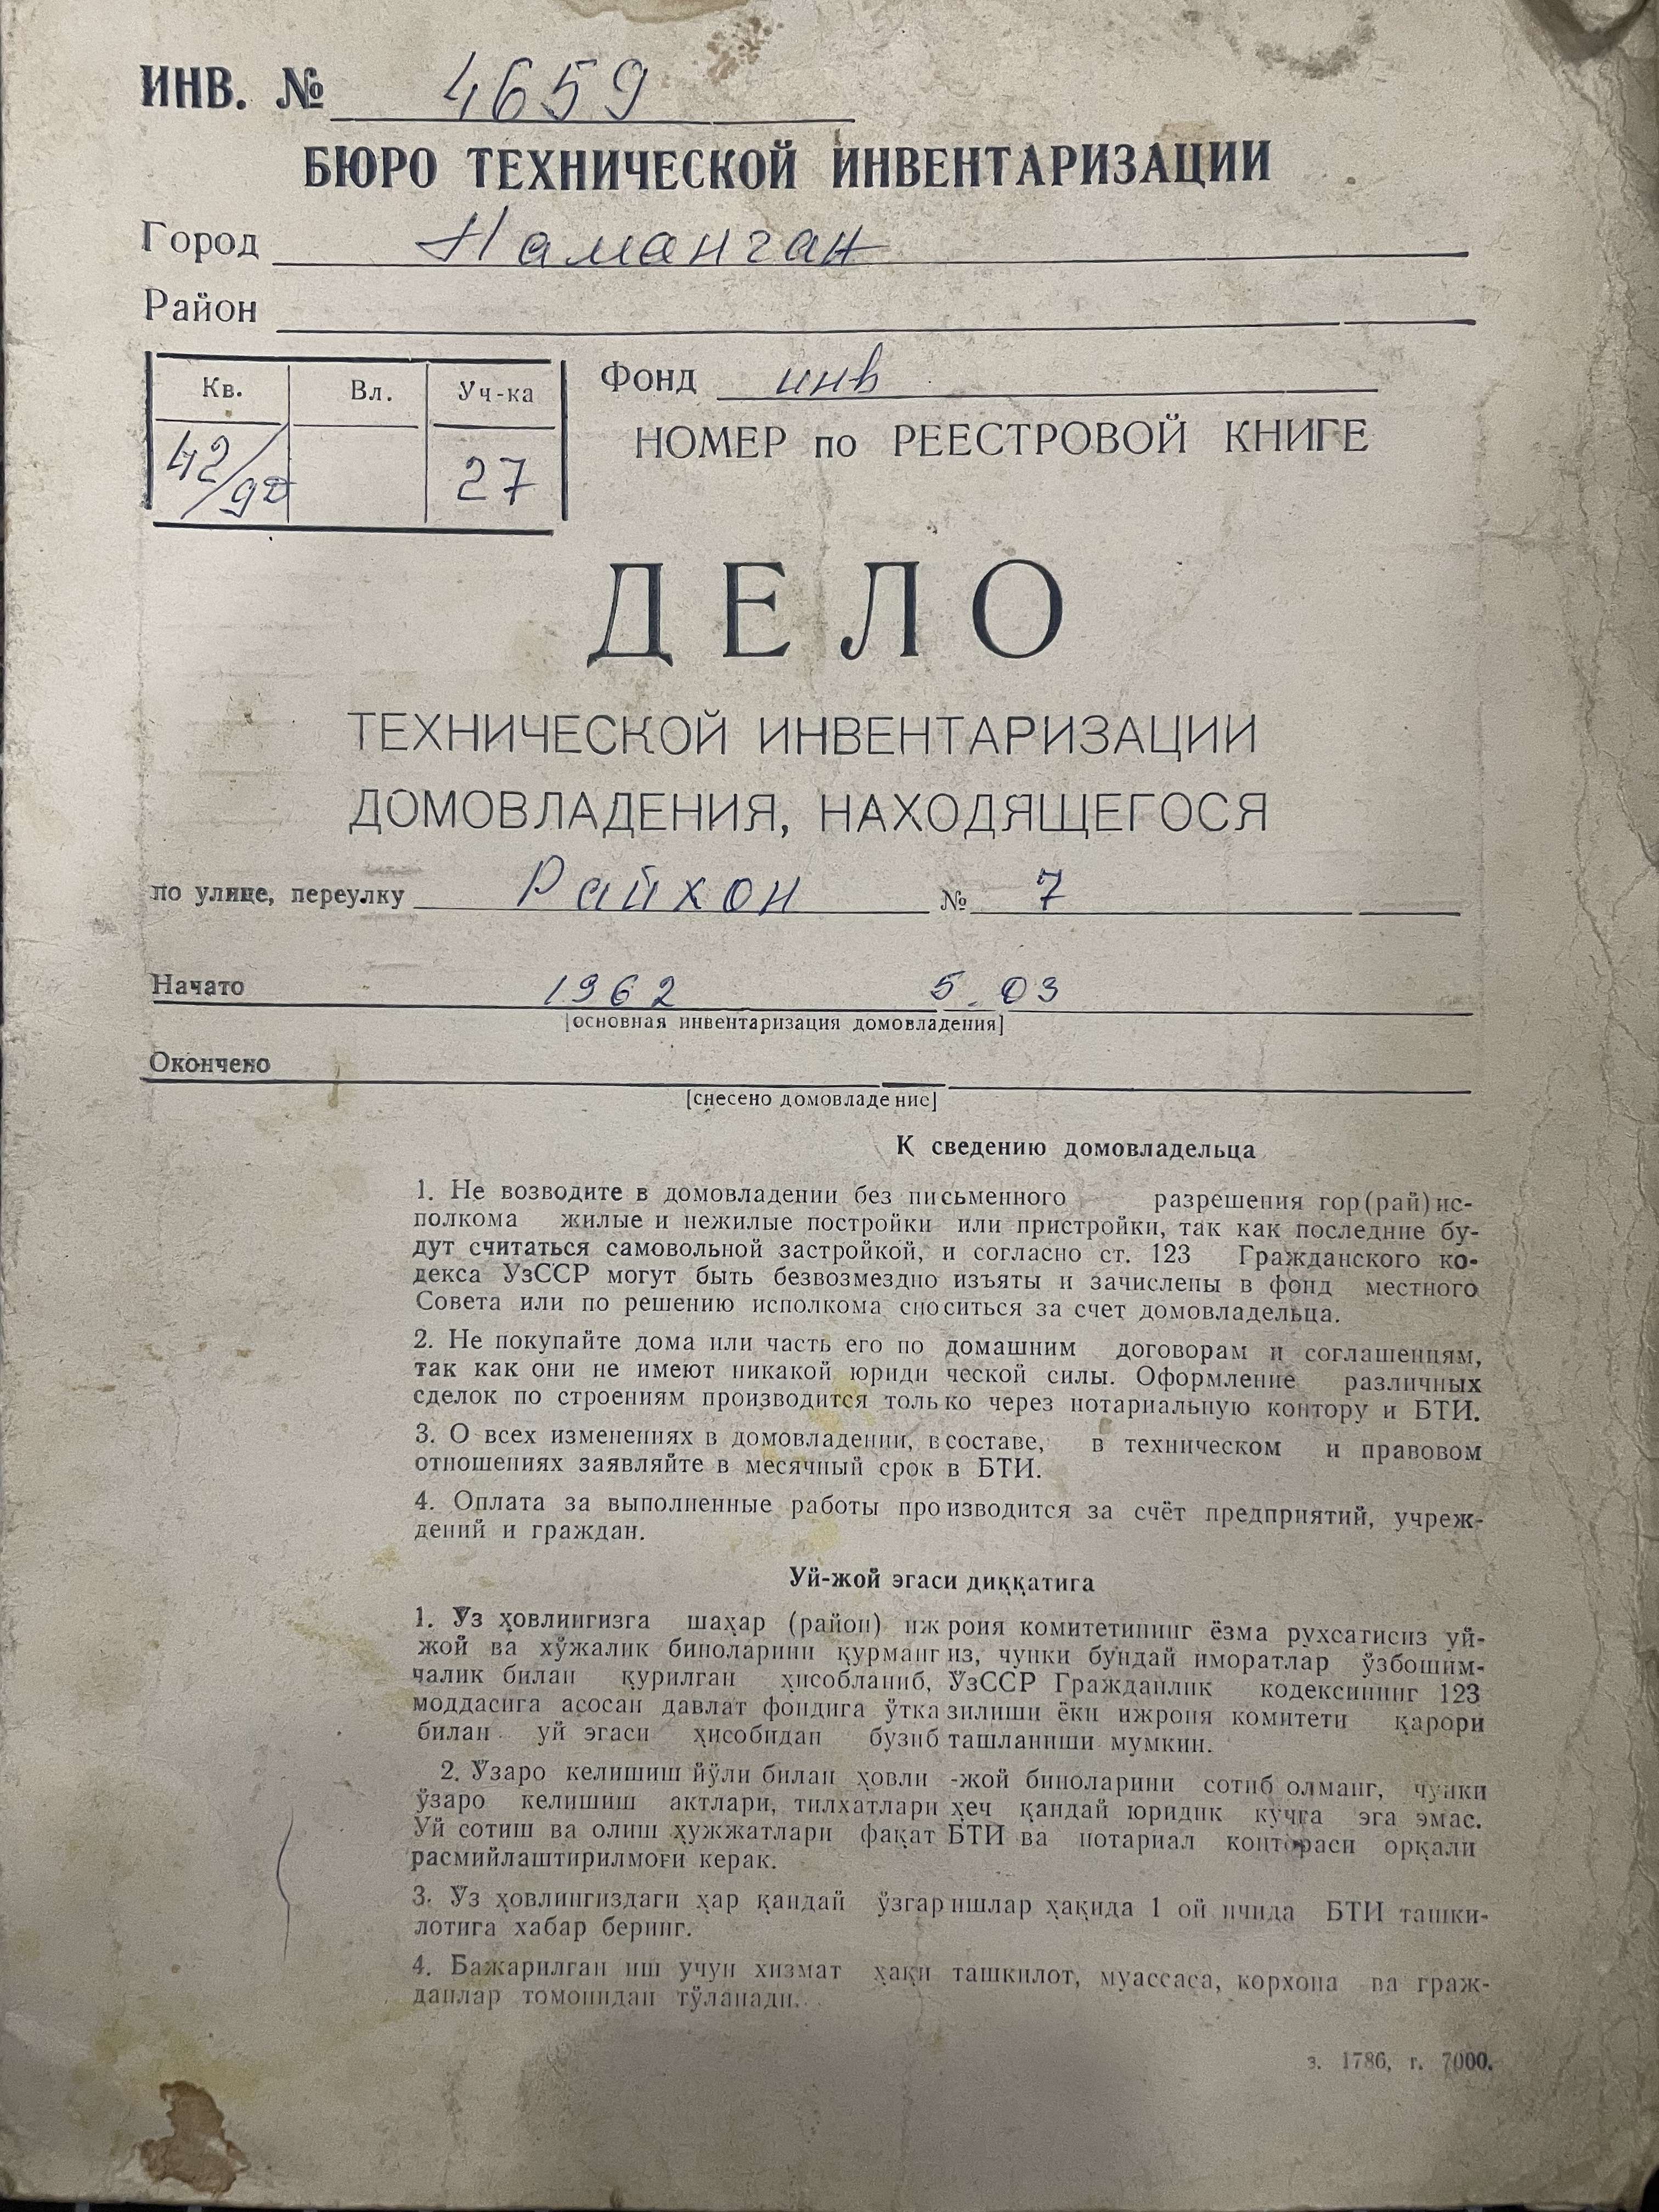 ИНВ. № 4659
БЮРО ТЕХНИЧЕСКОЙ ИНВЕНТАРИЗАЦИИ
Город Наманган
Район
Кв. Вл. Уч-ка
42/92 27
Фонд инв
НОМЕР по РЕЕСТРОВОЙ КНИГЕ
ДЕЛО
ТЕХНИЧЕСКОЙ ИНВЕНТАРИЗАЦИИ
ДОМОВЛАДЕНИЯ, НАХОДЯЩЕГОСЯ
по улице, переулку Райхон № 7
Начато 1962 5.03
[основная инвентаризация домовладения]
Окончено
[снесено домовладение]
К сведению домовладельца
1. Не возводите в домовладении без письменного разрешения гор(рай)ис-
полкома жилые и нежилые постройки или пристройки, так как последние бу-
дут считаться самовольной застройкой, и согласно ст. 123 Гражданского ко-
декса УзССР могут быть безвозмездно изъяты и зачислены в фонд местного
Совета или по решению исполкома сноситься за счет домовладельца.
2. Не покупайте дома или часть его по домашним договорам и соглашениям,
так как они не имеют никакой юридической силы. Оформление различных
сделок по строениям производится только через нотариальную контору и БТИ.
3. О всех изменениях в домовладении, в составе, в техническом и правовом
отношениях заявляйте в месячный срок в БТИ.
4. Оплата за выполненные работы производится за счёт предприятий, учреж-
дений и граждан.
Уй-жой эгаси диққатига
1. Ўз ҳовлингизга шаҳар (район) ижроия комитетининг ёзма рухсатисиз уй-
жой ва хўжалик биноларини қурмангиз, чунки бундай иморатлар ўзбошим-
чалик билан қурилган ҳисобланиб, ЎзССР Гражданлик кодексининг 123
моддасига асосан давлат фондига ўтказилиши ёки ижроия комитети қарори
билан уй эгаси ҳисобидан бузиб ташланиши мумкин.
2. Ўзаро келишиш йўли билан ҳовли-жой биноларини сотиб олманг, чунки
ўзаро келишиш актлари, тилхатлари ҳеч қандай юридик кучга эга эмас.
Уй сотиш ва олиш ҳужжатлари фақат БТИ ва нотариал контораси орқали
расмийлаштирилмоғи керак.
3. Ўз ҳовлингиздаги ҳар қандай ўзгаришлар ҳақида 1 ой ичида БТИ ташки-
лотига хабар беринг.
4. Бажарилган иш учун хизмат ҳақи ташкилот, муассаса, корхона ва граж-
данлар томонидан тўланади.
з. 1786, т. 7000.